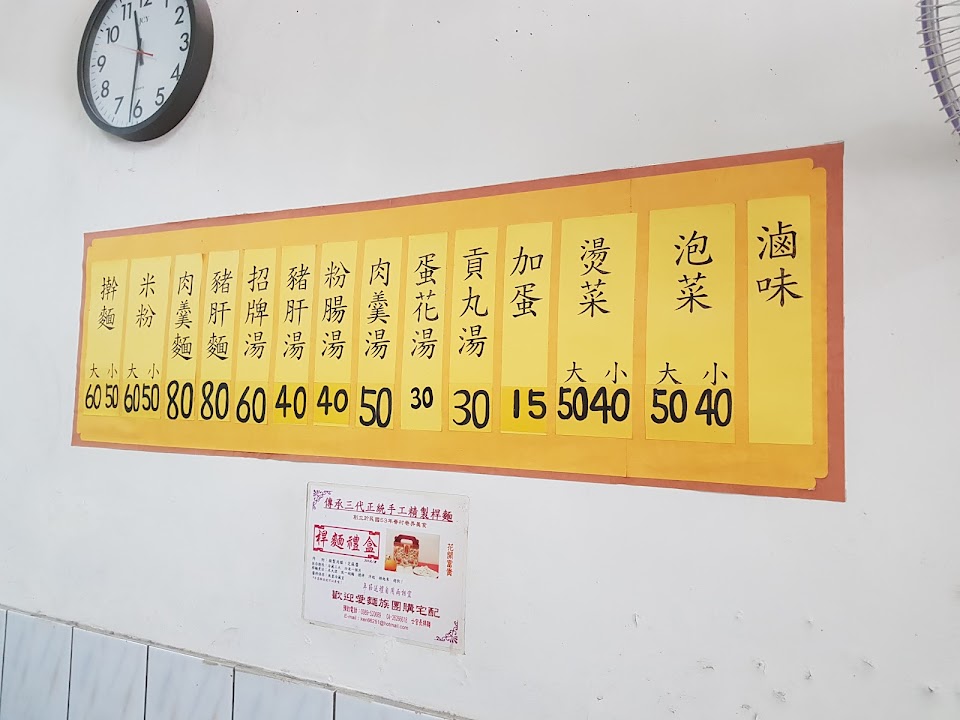 12
11
10
9
8
7
6
5
4
3
2
1
擀麵
大 小
60 50
米粉
大 小
60 50
肉羹麵
80
豬肝麵
80
招牌湯
60
豬肝湯
40
粉腸湯
40
肉羹湯
50
蛋花湯
30
貢丸湯
30
加蛋
15
燙菜
大 小
50 40
泡菜
大 小
50 40
滷味
傳承三代正統手工精製桿麵
桿麵禮盒
花開富貴
歡迎愛麵族團購宅配